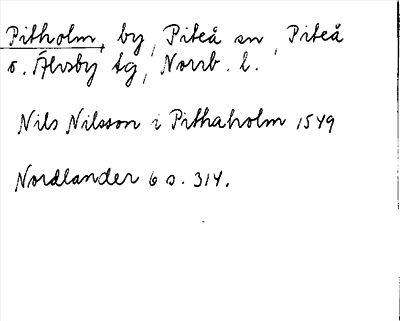 Pitholm, by, Piteå sn, Piteå
o. Älvsby tg, Norrb. l.
Nils Nilsson i Pithaholm 1549
Nordlander 6 s. 314.